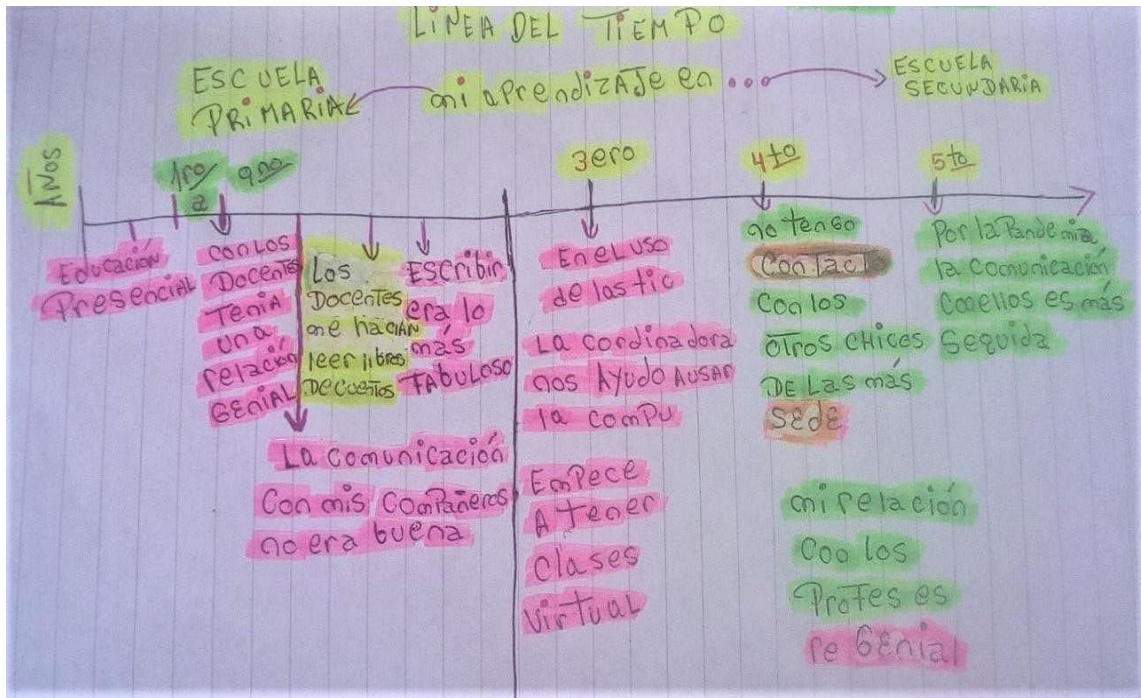 LINEA DEL TIEMPO
ESCUELA
PRIMARIA
mi aprendizaje en...
ESCUELA
SECUNDARIA
AÑOS
1ro/
a
9no
3ero
4to
5to
Educación
Presencial
con los
Docentes
Tenia
una
relación
GENiAL
Los
Docentes
me hacian
leer libros
De cuentos
Escribir
era lo
más
FABuloso
La comunicación
Con mis compañeros
no era buena
En el uso
de las tic
La cordinadora
nos Ayudo Ausar
la compu
Empece
A tener
Clases
virtual
no tengo
Contact
con los
otros chices
DE Las más
SEdE
mi relación
con los
Profes es
re Genial
Por la Pandemia
la comunicación
con ellos es más
Seguida